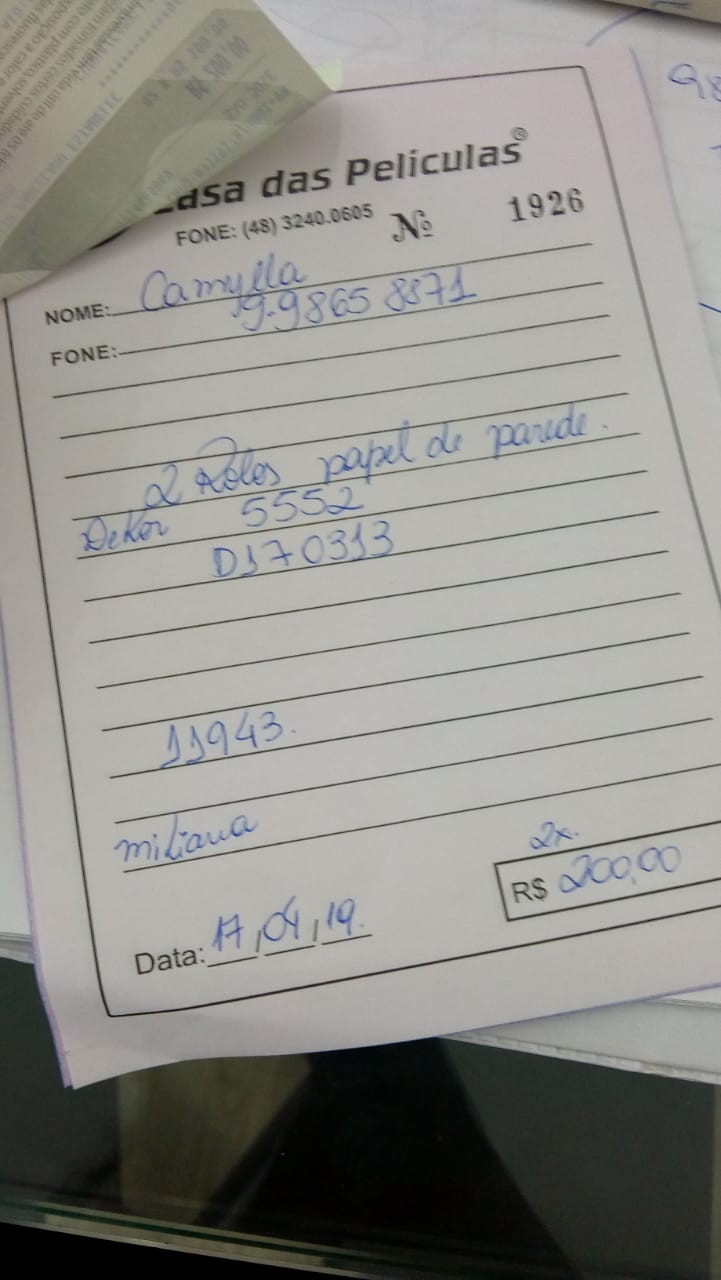 Casa das Películas®
FONE: (48) 3240.0605 Nº 1926
NOME: Camylla
9-9865 8871
FONE:
2 Rolos papel de parede.
Dekor 5552
D170313
11943.
miliana
2x.
R$ 200,00
Data: 17,04,19.
98